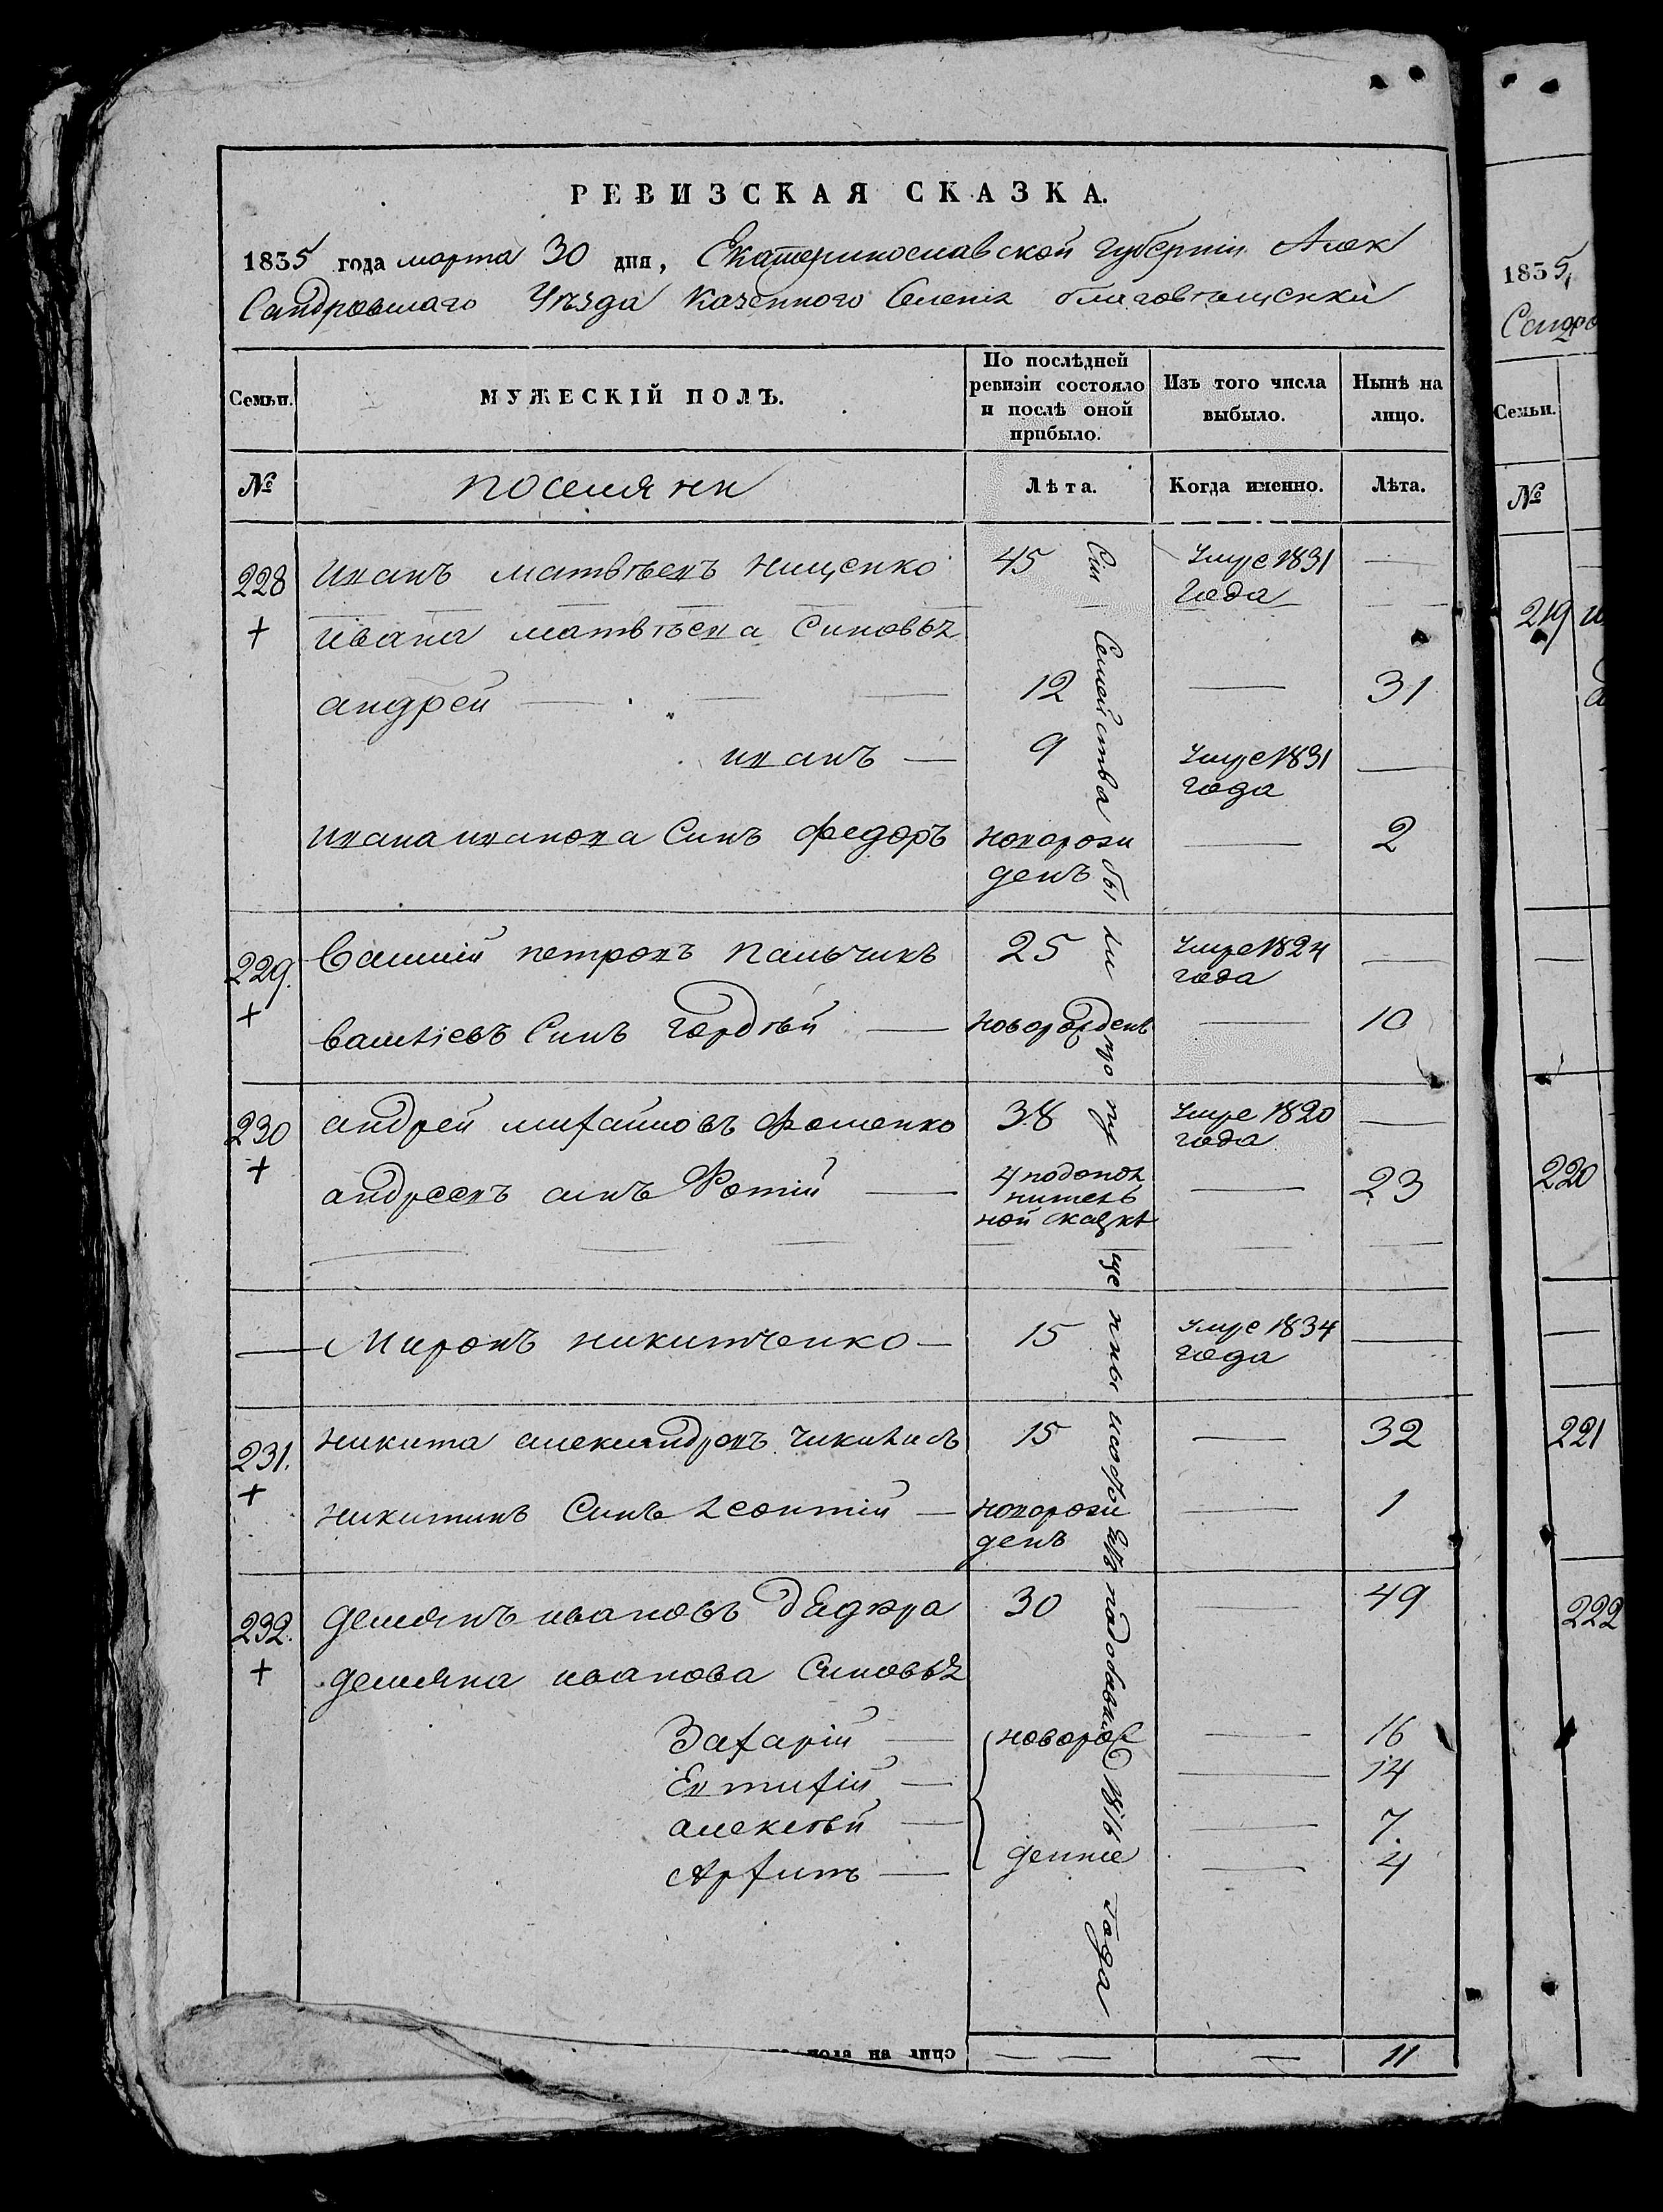 РЕВИЗСКАЯ СКАЗКА.
1835 года марта 30 дня, Екатеринославской губерніи Алек
Сандровшаго Уѣзда Казенного Селенія благовѣщенки
Семьи.
МУЖЕСКІЙ ПОЛЪ.
По послѣдней ревизіи состояло и послѣ оной прибыло.
Изъ того числа выбыло.
Нынѣ на лицо.
№
поселяни
Лѣта.
Когда именно.
Лѣта.
228 иванъ матвѣевъ Нищенко 45 Умре 1831 года —
+ ивана матвѣева Синовья
андрей — 12 — 31
иванъ — 9 Умре 1831 года —
ивана иванова Синъ Федоръ новорожденъ — 2
229. Василій петровъ пальчикъ 25 Умре 1824 года —
+ василіевъ Синъ Гордѣй — новорожденъ — 10
230 андрей михайловъ Фоменко 38 Умре 1820 года —
+ андреевъ синъ Фотій — 4 подополнительной сказкѣ — 23
— Миронъ никитченко — 15 Умре 1834 года —
231. никита александровъ 15 — 32
+ никитинъ Синъ леонтій — новорожденъ — 1
232. демянъ ивановъ 30 — 49
+ демяна иванова Синовья
Захарій — новорож — 16
Евтифій — — 14
алексѣй — — 7
Архипъ — денные — 4
Сіи Семейства были пропущенны и собъявъ подобавки 1816 года
пола на лицо — — — 11
1835
Сандро
Семьи.
№
219
220
221
222